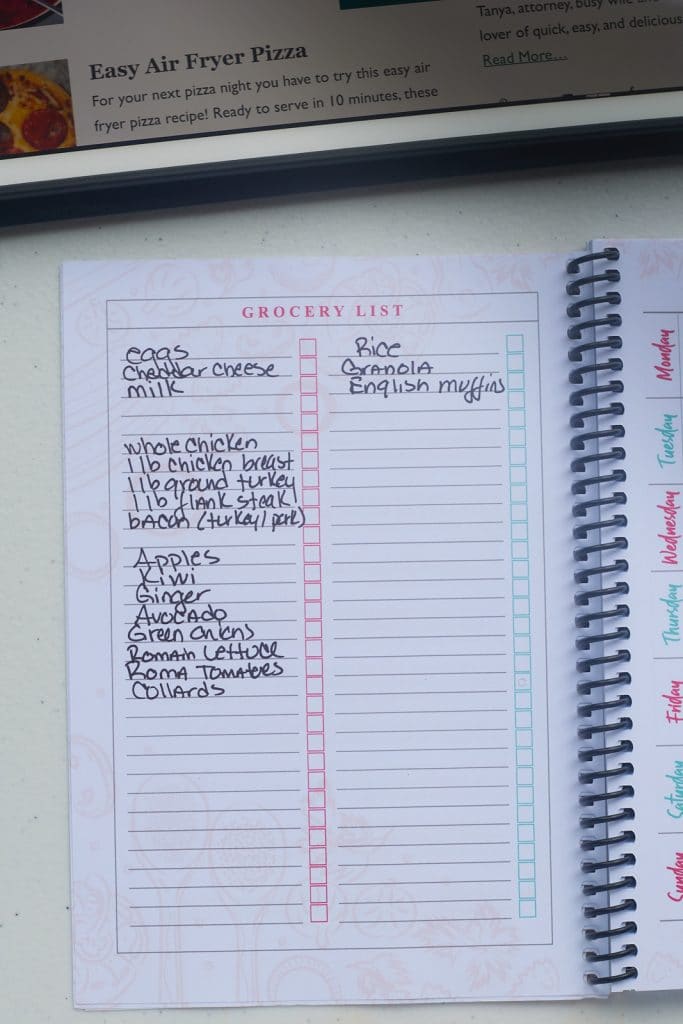 Tanya, attorney, busy
lover of quick, easy, and delicious
Read More…
Easy Air Fryer Pizza
For your next pizza night you have to try this easy air
fryer pizza recipe! Ready to serve in 10 minutes, these
GROCERY LIST
eggs
Cheddar cheese
milk
whole chicken
1 lb chicken breast
1 lb ground turkey
1 lb flank steak
bacon (turkey/pork)
Apples
Kiwi
Ginger
Avocado
Green Onions
Romain Lettuce
Roma Tomatoes
Collards
Rice
Granola
English muffins
Monday
Tuesday
Wednesday
Thursday
Friday
Saturday
Sunday